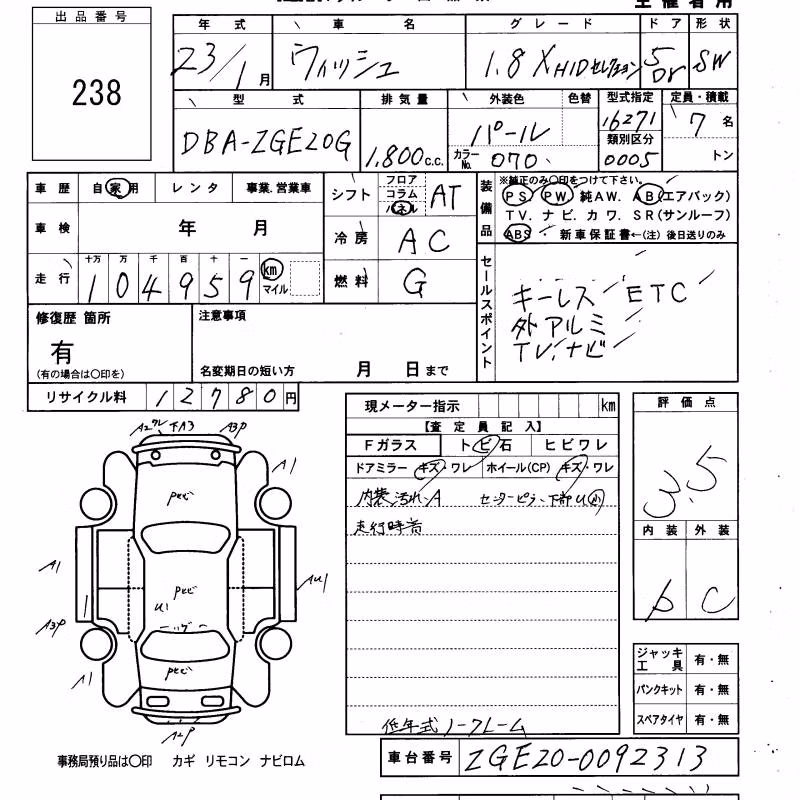 出品番号
238
主催者用
年式 車名 グレード ドア 形状
23/1月 ウィッシュ 1.8X HIDセレクション 5Dr SW
型式 排気量 外装色 色替 型式指定 定員・積載
DBA-ZGE20G 1,800c.c. パール 16271 7名
カラーNo. 070 類別区分 0005 トン
車歴 自家用 レンタ 事業.営業車
車検 年 月
走行 十万 万 千 百 十 一
104959 km マイル
シフト フロア コラム パネル AT
冷房 AC
燃料 G
装備品 ※純正のみ〇印をつけて下さい。
PS PW 純AW. AB(エアバック)
TV. ナビ. カワ. SR(サンルーフ)
ABS 新車保証書←(注)後日送りのみ
セールスポイント
キーレス ETC
外アルミ
TV,ナビ
修復歴 箇所
有
(有の場合は〇印を)
注意事項
名変期日の短い方 月 日まで
リサイクル料 12780円
現メーター指示 km
【査定員記入】
Fガラス トビ石 ヒビワレ
ドアミラー キズ・ワレ ホイール(CP) キズ・ワレ
内装汚れ・A センターピラー下部U小
走行時音
低年式ノークレーム
評価点
3.5
内装 外装
b C
ジャッキ工具 有・無
パンクキット 有・無
スペアタイヤ 有・無
A2ワレ 下A3 A3P
A1
Pセビ
A1 Pセビ AU1
U1
A3P
A1 Pセビ
A2P
事務局預り品は〇印 カギ リモコン ナビロム
車台番号 ZGE20-0092313